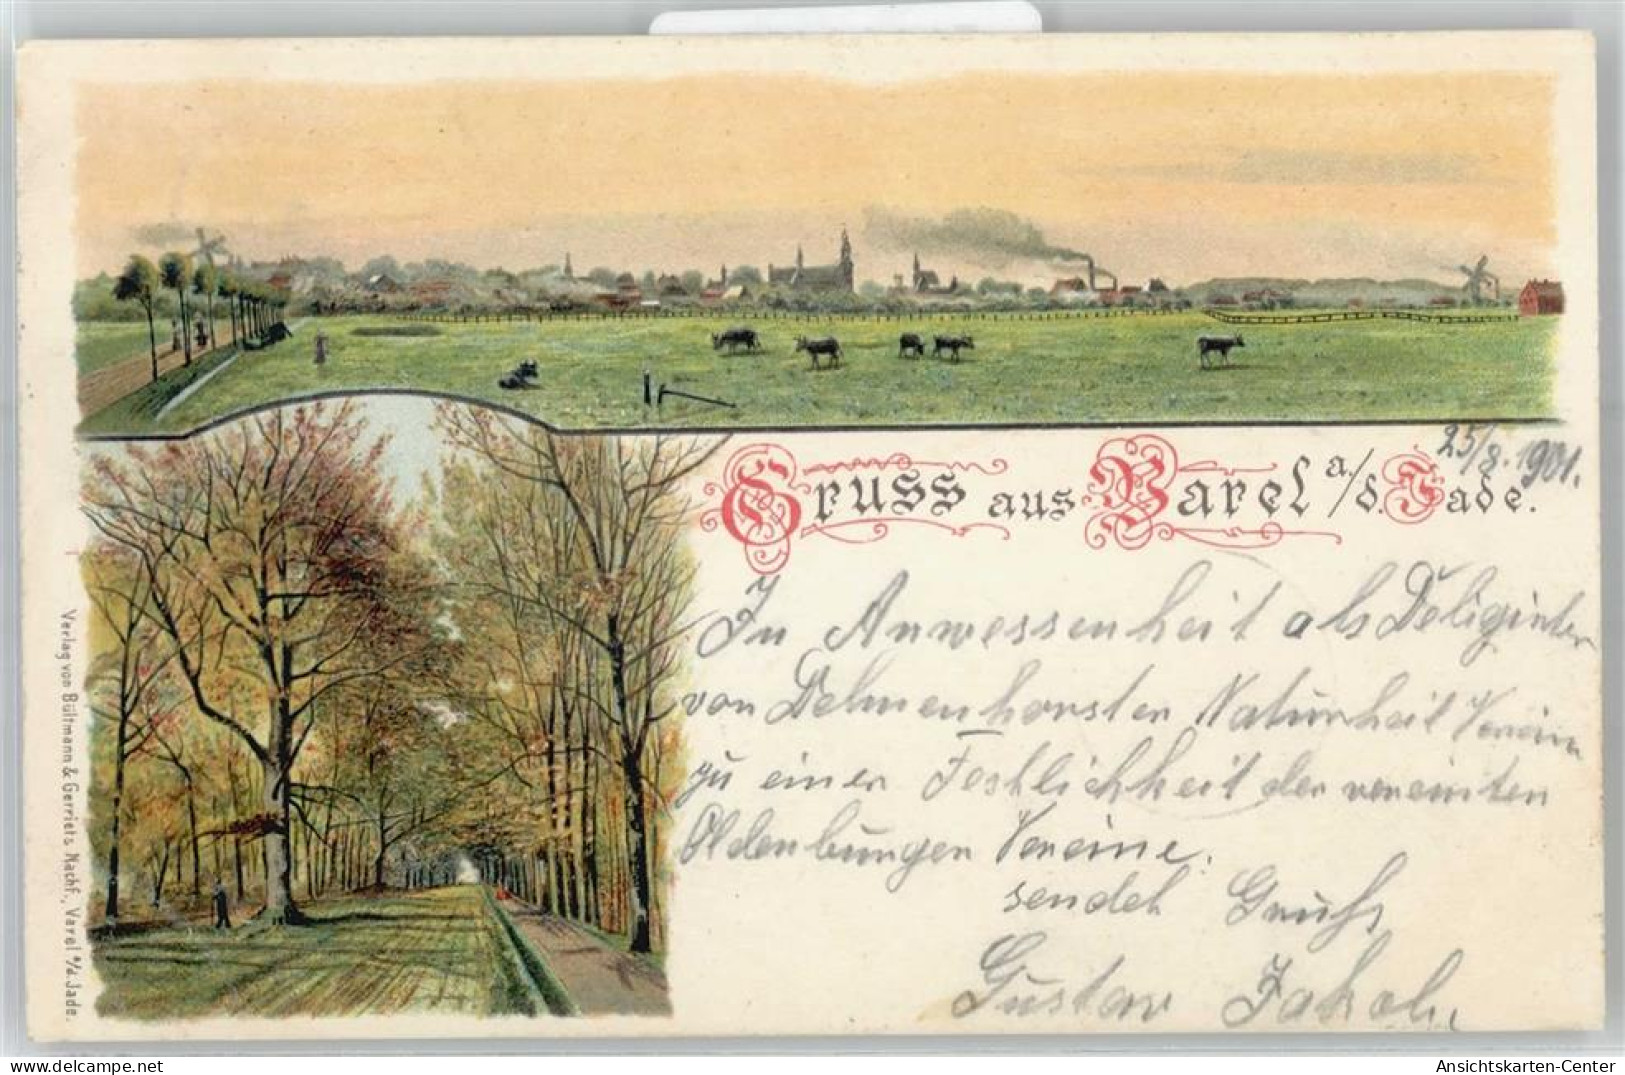 25/8. 1901.
Gruss aus Varel a./d. Jade.
In Anwesenheit als Deliginter
von Delmenhorster Naturheil Verein
zu einer Festlichkeit der vereinten
Oldenburger Vereine.
sendet Gruß
Gustav
Verlag von Bültmann & Gerriets Nachf., Varel a/d. Jade.
Ansichtskarten-Center